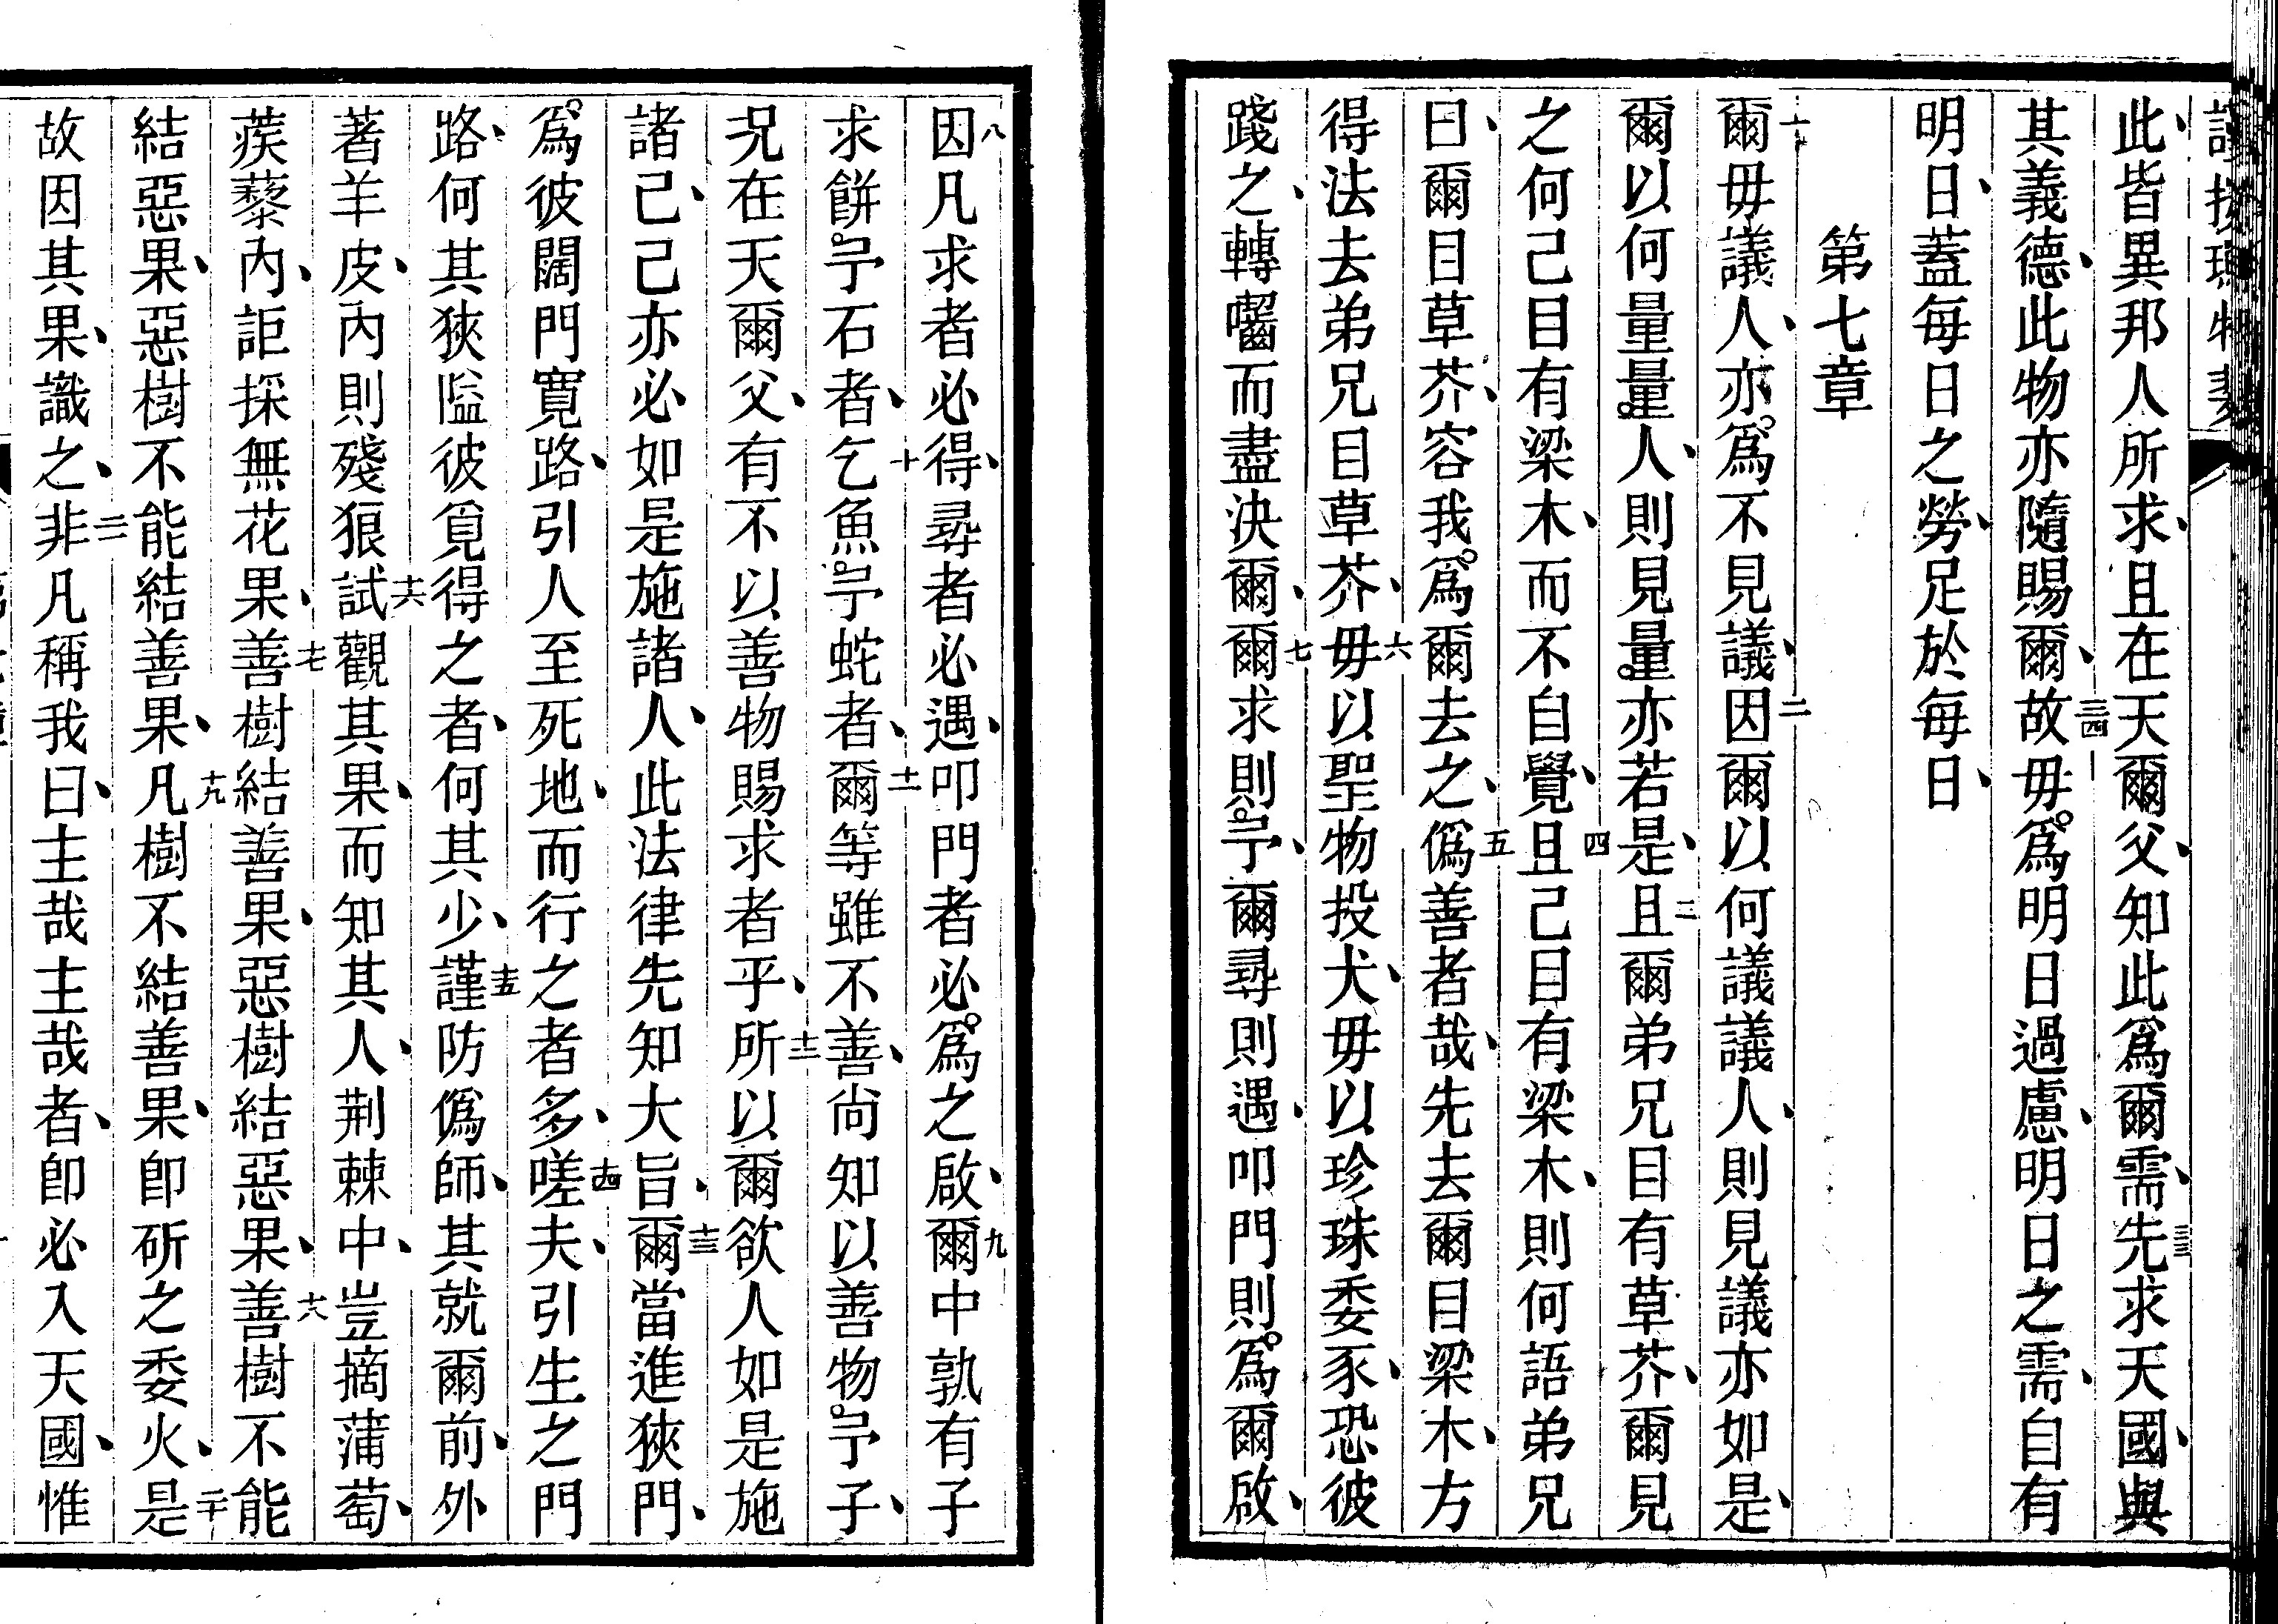 此、皆異邦人所求、且在天爾父、知此爲爾需、三三先求天國、與
其義德、此物亦隨賜爾、三四故毋爲明日過慮、明日之需、自有
明日、蓋每日之勞、足於每日、
第七章
一爾毋議人、亦爲不見議、二因爾以何議議人、則見議亦如是、
爾以何量量人、則見量亦若是、三且爾弟兄目有草芥、爾見
之何己目有梁木、而不自覺、四且己目有梁木、則何語弟兄
曰、爾目草芥、容我爲爾去之、五僞善者哉、先去爾目梁木、方
得法去弟兄目草芥、六毋以聖物投犬、毋以珍珠委豕、恐彼
踐之、轉囓而盡決爾、七爾求則予、爾尋則遇、叩門則爲爾啟、
八因凡求者必得、尋者必遇、叩門者必爲之啟、九爾中孰有子
求餅予石者、十乞魚予蛇者、十一爾等雖不善、尚知以善物予子、
況在天爾父、有不以善物賜求者乎、十二所以爾欲人如是施
諸己、己亦必如是施諸人、此法律先知大旨、十三爾當進狹門、
爲彼闊門寬路、引人至死地、而行之者多、十四嗟夫、引生之門
路、何其狹隘彼覓得之者、何其少、十五謹防僞師、其就爾前、外
著羊皮、內則殘狼十六試觀其果、而知其人、荆棘中、豈摘蒲萄、
蒺藜內、詎採無花果、十七善樹結善果、惡樹結惡果、十八善樹不能
結惡果、惡樹不能結善果、十九凡樹不結善果、即斫之委火、二十是
故因其果、識之、二一非凡稱我曰、主哉主哉者、即必入天國、惟